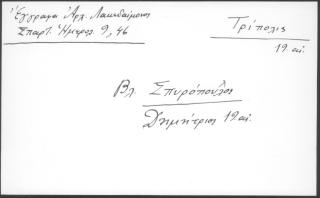 Ἔγγραφα Ἀρχ. Λακεδαίμονος
Σπαρτ. Ἡμερολ. 9, 46
Τρίπολις
19 αἰ.
Βλ. Σπυρόπουλος
Δημήτριος 19 αἰ.